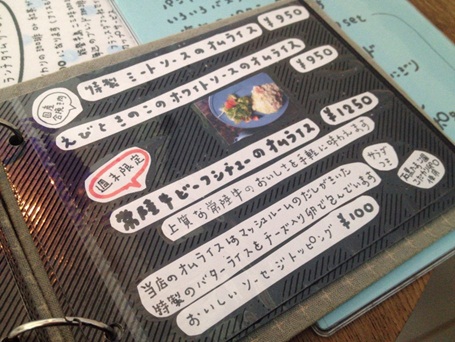 特製ミートソースのオムライス ¥950
国産
合挽き肉
えびときのこのホワイトソースのオムライス ¥950
週末限定
常陸牛ビーフシチューのオムライス ¥1250
上質な常陸牛のおいしさを手軽に味わえます
サラダ
つき
当店のオムライスはマッシュルームのだしがきいた
特製のバターライスをチーズ入り卵で包んでいます
おいしいソーセージトッピング ¥100